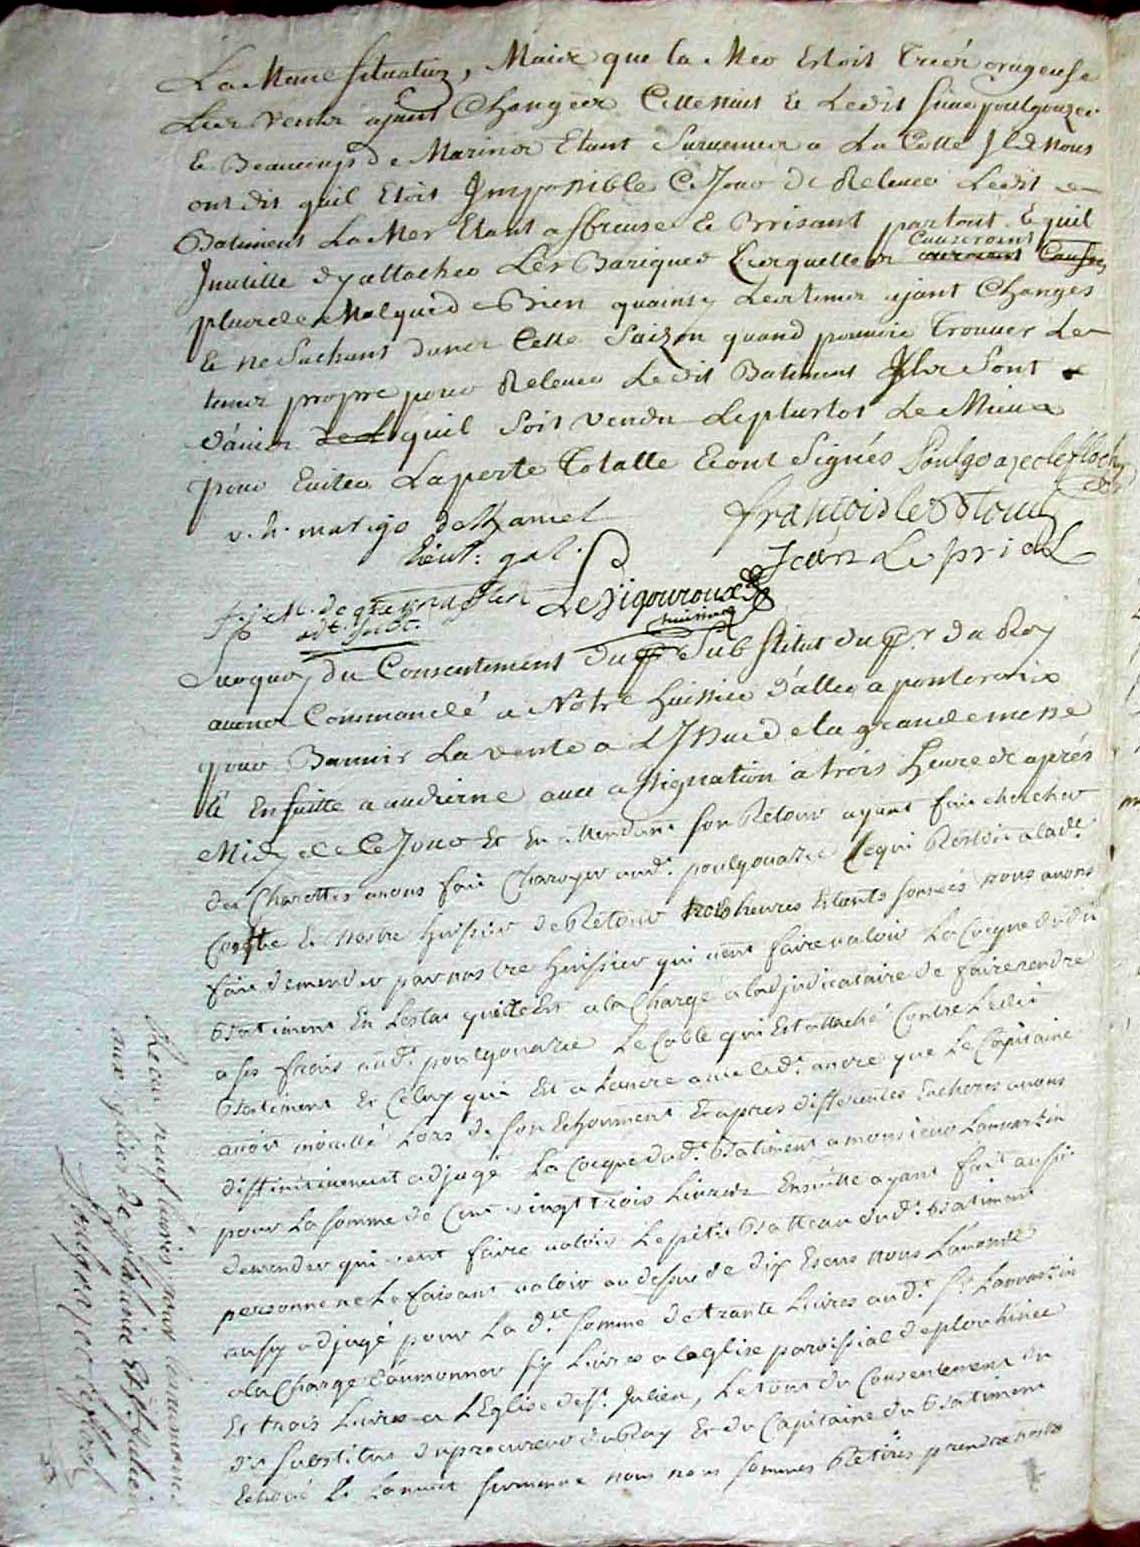 La Meme situation, Maix que la Mer Estoit Treér orageuse
Lier Venter ajant Changéer Cette nuit Et Ledit sieur poulgouzec
Et Beaucoup de Mariner Etant Survenuer a La Cotte Iler nous
ont dit quil Etoit Impossible Ce Jour de Relever Ledit
Batiment La Mer Etant affreuse Et Brisant partout Et quil
Inutille dy attacher Les Bariquer Lesquelles causeroint
plus de Mal que de Bien quainsy Les temer ajant Changes
Et ne Sachant dans Cette Saizon quand pouvoir Trouver Le
temer propre pour Relever Ledit Batiment Iler Sont
d'avier quil Soit Vendu Le plustot Le Mieux
pour Eviter La perte Totalle Et ont Signés Poulgoazec le floch
v. h. matigo de Kamel françois le
Lieut: gal: Jean Le priol
Le Vigouroux
adt. subt. huissier
Surquoy du Consentement du Substitut du pr. du Roy
avons Commandé a Notre huissier d'aller a pontcroix
pour Bannir La vente a L'Issue de la grande messe
Et Ensuitte a audierne avec assignation a trois heure et aprés
Midy de Ce Jour Et En attendant son Retour ayant fait chercher
des Charettes avons fait Charoyer audt. poulgouazec Ce qui Restoit a ladt.
Coste Et nostre huissier de Retour trois heures Estants sonnées nous avons
fait demender par nostre huissier qui vient faire valoir La Cocque dudit
batiment En Lestat quelle Est a la Charge a ladjudicataire de faire rendre
a ses frais audt. poulgouazec Le Cable qui Est attaché Contre Ledit
batiment Et Celuy qui Est a Lancre avec ladt. ancre que Le Capitaine
avoit mouillé Lors de son Echoument Et apres differentes Encheres avons
diffinitivement adjugé La Cocque dudt. batiment a monsieur Lanvarzin
pour La somme de Cent vingt trois Livres Ensuitte ayant fait aussi
demender qui vient faire valoir Le petit batteau dudt. batiment
personne ne Le faisant valoir au dessus de dix Escus nous Lavonts
aussy adjugé pour La dte somme de trante Livres audt. sr. Lanvarzin
a la Charge d'aumonner six Livres a leglise paroissial de plouhinec
Et trois Livres a L'Eglise de st. Julien, Le tout du Consentement du
dt. substitut du procureur du Roy Et du Capitaine du batiment
Echoué Et La nuit survenue nous nous sommes Retirés prendre nostre
Recu neuf livres pour laumone
aux glises de plouhinec Et st. Julien
Poulgoazec le floch